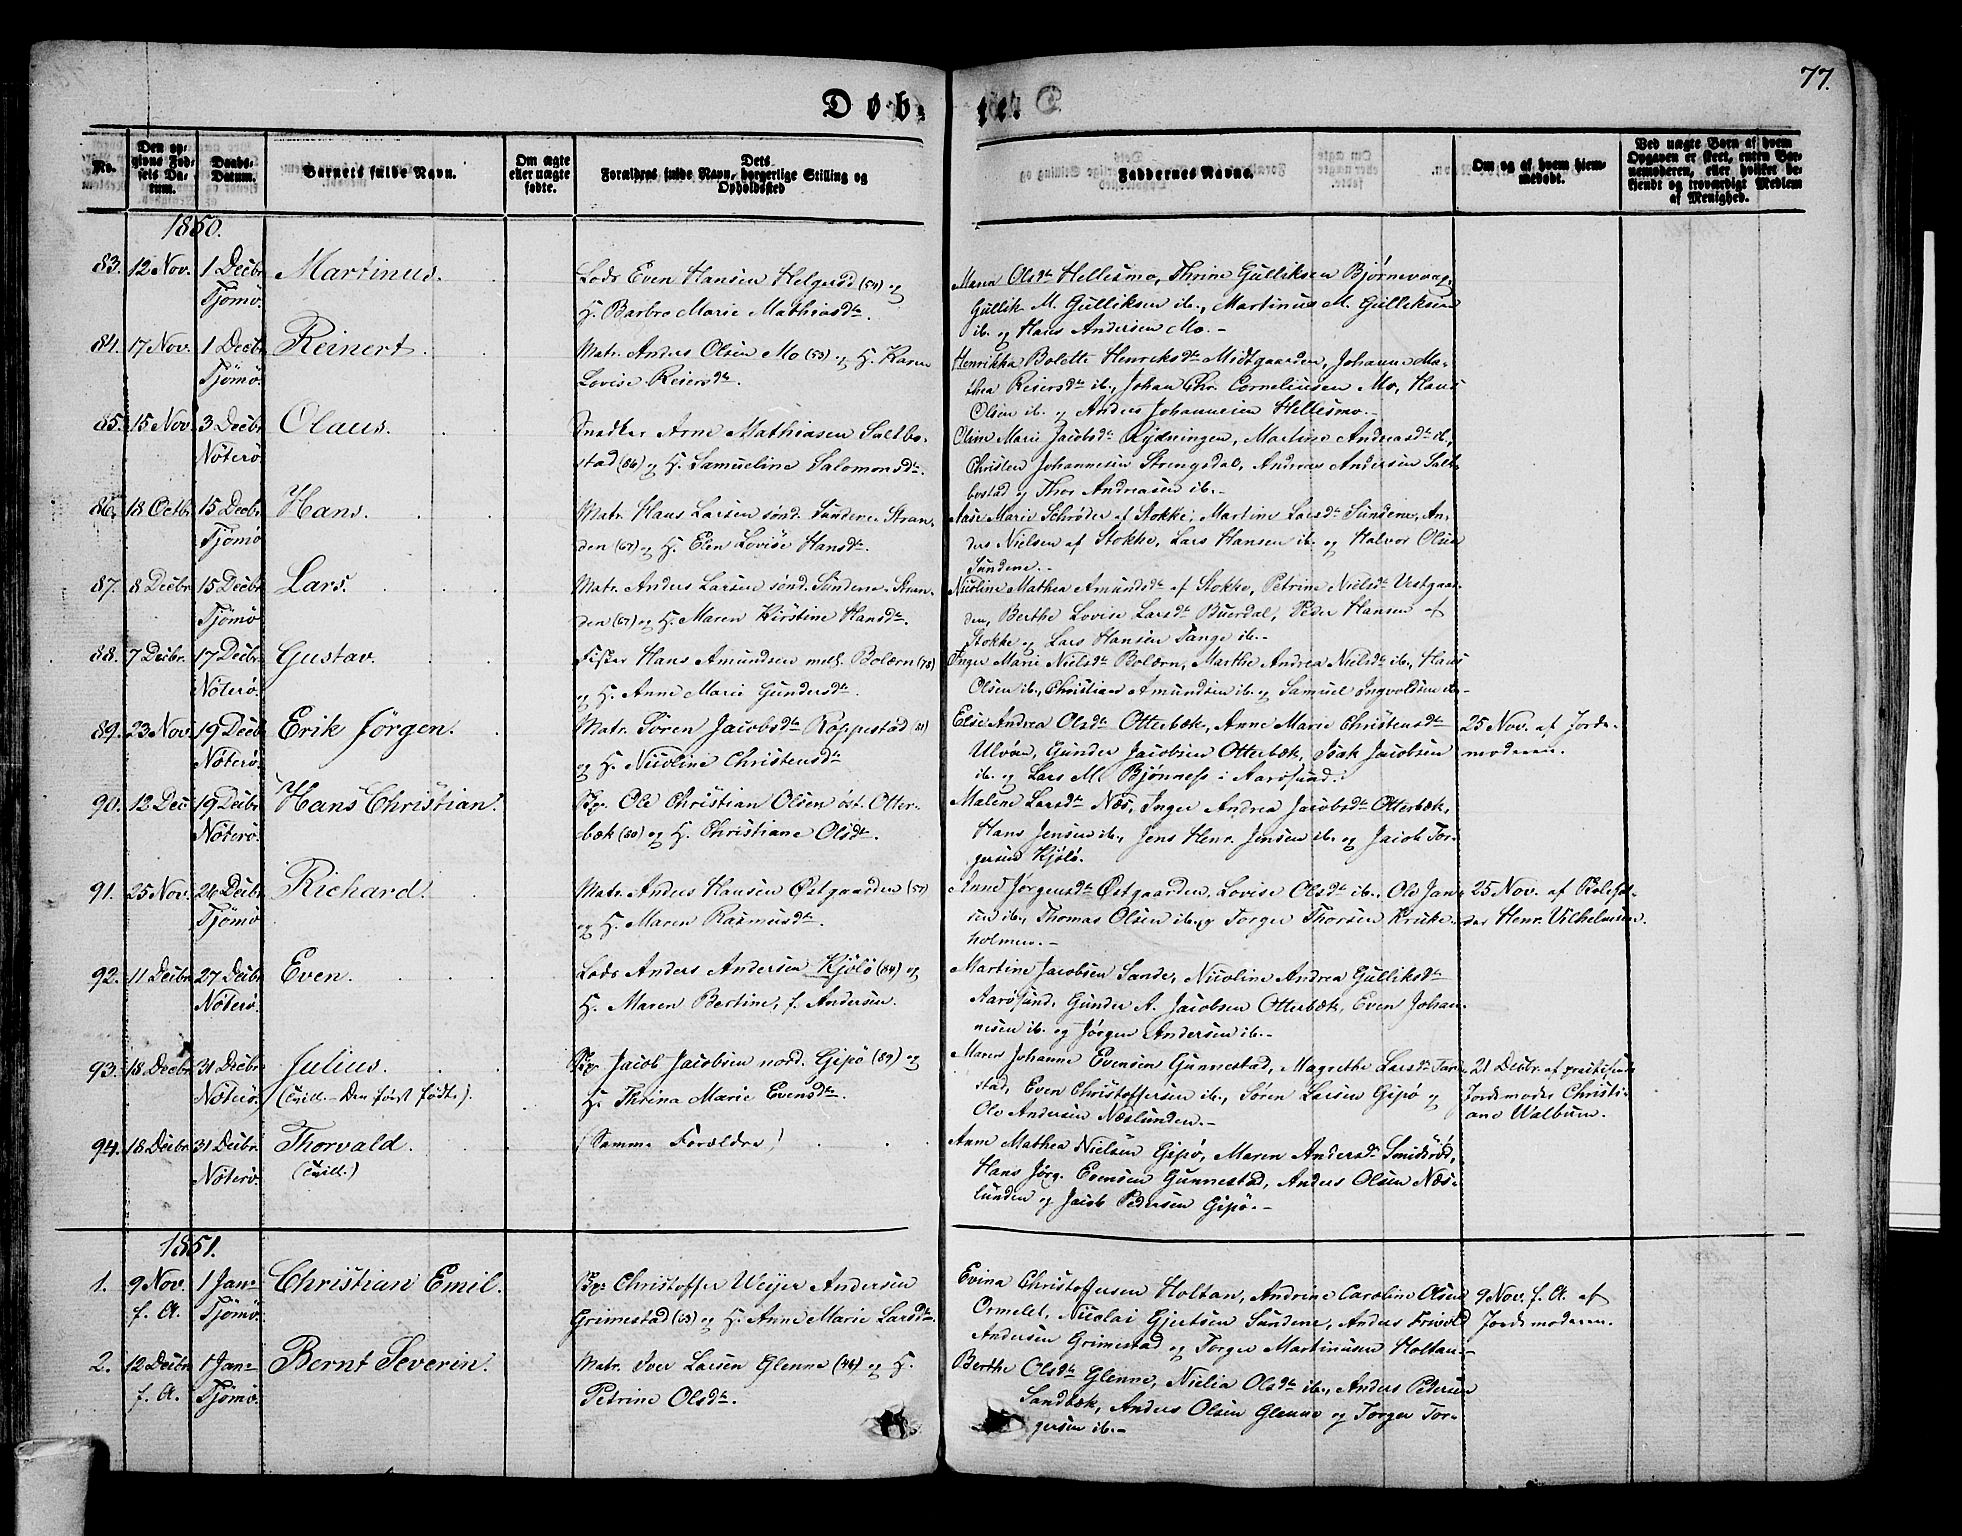 77.
Døb- te.
No.
Den opgivne Fødsels Datum.
Daabs-Datum.
Barnets fulde Navn.
Om ægte eller uægte fødte.
Dets Forældres fulde Navn, borgerlige Stilling og Opholdssted
Faddernes Navne.
Om og af hvem hjemmedøbt.
Ved uægte Børn af hvem Opgaven er skeet, enten Barnemoderen, eller hvilket bekjendt og troværdigt Medlem af Menighed.
1850.
83. 12 Nov. 1 Decbr Tjömö. Martinus.
Lods Even Hansen Helgerød (54) og
H. Barbro Marie Mathiasdtr.
Maren Olsdtr Hellesmo, Thrine Gulliksen Bjørnevaag,
Gullik M. Gulliksen ib., Martinus M. Gulliksen
ib. og Hans Andersen Mo.-
84. 17 Nov. 1 Decbr Tjömö. Reinert.
Matr. Anders Olsen Mo (53) og H. Karen
Lovise Reiersdtr.
Henrikka Bolette Henriksdtr Midtgaarden, Johanne Ma-
thea Reiersdtr ib., Johan Chr. Corneliussen Mo, Hans
Olsen ib. og Anders Johannesen Hellesmo.-
85. 15 Nov. 3 Decbr Nöterö. Olaus.
Snedker Arne Mathiasen Saltbo-
stad (86) og H. Samueline Salomonsdtr.
Oline Marie Jacobsdtr Rydningen, Martine Andreasdtr ib.,
Christen Johannesen Strengsdal, Andreas Andersen Salt-
bostad og Thor Andreasen ib.-
86. 18 Octbr. 15 Decbr. Tjömö Hans.
Matr. Hans Larsen sönd. Sundene-Stran-
den (67) og H. Elen Lovise Hansdtr.
Aase Marie Schrøder af Stokke, Martine Larsdtr Sundene, An-
ders Nielsen af Stokke, Lars Hansen ib. og Halvor Olsen
Sundene.-
87. 8 Decbr 15 Decbr. Tjömö Lars.
Matr. Anders Larsen sönd. Sundene-Stran-
den (67) og H. Maren Kirstine Hansdtr.
Nicoline Mathea Amundsdtr af Stokke, Petrine Nielsdtr Vestgaar-
den, Berthe Lovise Larsdtr Buerdal, Peder Hansen af
Stokke og Lars Hansen Tange ib.-
88. 7 Decbr. 17 Decbr Nöterö. Gustav.
Fisker Hans Amundsen mell. Bolærn (78)
og H. Anne Marie Gundersdtr.
Inger Marie Nielsdtr Bolærn, Marthe Andrea Nielsdtr ib., Hans
Olsen ib., Christian Amundsen ib. og Samuel Ingvoldsen ib.-
89. 23 Nov. 19 Decbr Nöterö. Erik Jörgen.
Matr. Sören Jacobsdtr Roppestad (81)
og H. Nicoline Christensdtr
Else Andrea Olsdtr Otterbæk, Anne Marie Christensdtr
Ulvöen, Gunder Jacobsen Otterbæk, Isak Jacobsen
ib. og Lars M. Bjönness i Aarösund.
25 Nov. af Jorde-
moderen.
90. 12 Dec 19 Decbr. Nöterö. Hans Christian.
Sp. Ole Christian Olsen öst. Otter-
bæk (80) og H. Christiane Olsdtr.
Malene Larsdtr Næs, Inger Andrea Jacobsdtr Otterbæk,
Hans Jensen ib., Jens Henr. Jensen ib. og Jacob Tor-
gersen Kjölö.
91. 25 Nov. 26 Decbr. Tjömö Richard.
Matr. Anders Hansen Østgaarden (57)
og H. Maren Rasmusdtr.
Anne Jørgensdtr Østgaarden, Lovise Olsdtr ib., Ole Jan-
sen ib., Thomas Olsen ib. og Torger Thorsen Kruke-
holmen.-
25 Nov. af Skolehol-
der Henr. Vilhelmsen.
92. 11 Decbr 27 Decbr Nöterö. Even.
Lods Anders Andersen Kjölö (84) og
H. Maren Bertine, f. Andersen.
Martine Jacobsen Sande, Nicoline Andrea Gulliksdtr
Aarösund, Gunder A. Jacobsen Otterbæk, Even Johan-
nesen ib. og Jörgen Andersen ib.-
93. 18 Decbr 31 Decbr. Nöterö. Julius.
(Tvill.- Den först födte).
Sp. Jacob Jacobsen nord. Gipö (89) og
H. Thrina Marie Evensdtr.
Maren Johanne Evensen Gunnestad, Magrethe Larsdtr Tor-
stad, Even Christoffersen ib., Sören Larsen Gipö og
Ole Andersen Næslunden.-
21 Decbr. af practiserende
Jordemoder Christi-
ane Walbum.
94. 18 Decbr 31 Decbr. Nöterö. Thorvald.
(Tvill.)
(Samme Forældre)
Anne Mathea Nielsen Gipö, Maren Andersdtr Smidsröd,
Hans Jörg. Evensen Gunnestad, Anders Olsen Næs-
lunden og Jacob Pedersen Gipö.-
1851.
1. 9 Nov. f. A. 1 Jan. Tjömö. Christian Emil.
Sp. Christoffer Weyer Andersen
Grimestad (63) og H. Anne Marie Larsdtr.
Evina Christoffersen Holtan, Andrine Caroline Olsen
Ormelet, Nicolai Gjertsen Sundene, Anders Frivold
Andersen Grimestad og Torger Martinusen Holtan.-
9 Nov. f. A. af
Jordemoderen.
2. 12 Decbr f. A. 1 Jan. Tjömö. Bernt Severin.
Matr. Iver Larsen Glenne (46) og H.
Petrine Olsdtr.
Berthe Olsdtr Glenne, Nielia Olsdtr ib., Anders Pedersen
Sandbæk, Anders Olsen Glenne og Torger Tor-
gersen ib.-